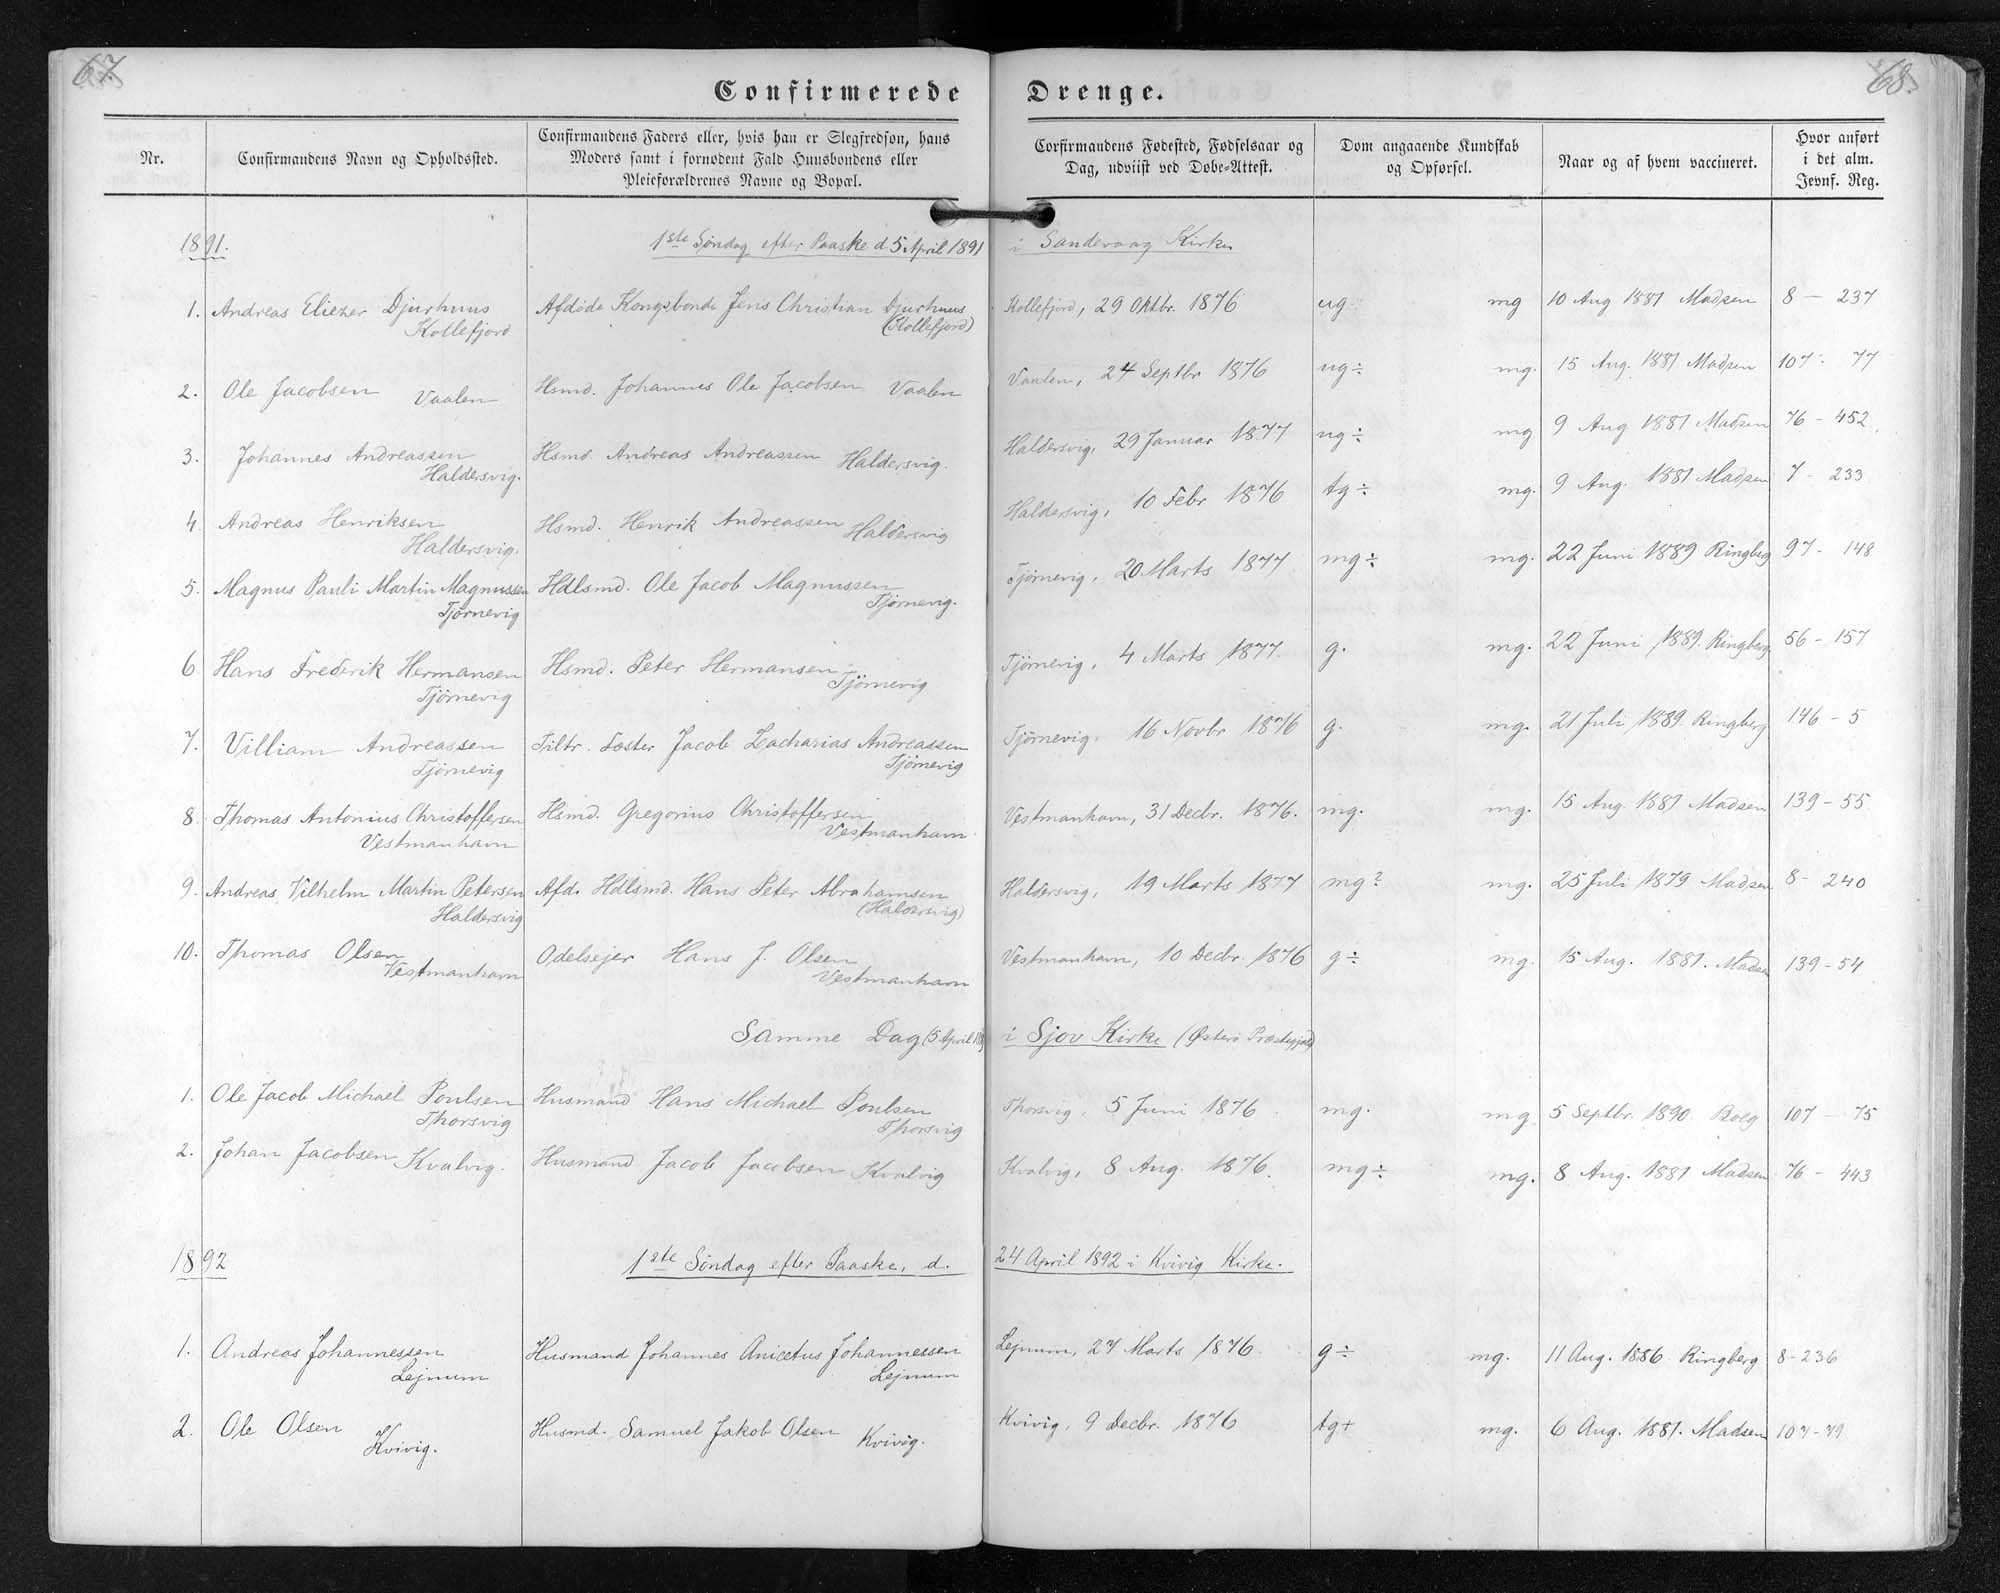 67.
68.
Confirmerede Drenge.
Nr.
Confirmandens Navn og Opholdssted.
Confirmandens Faders eller, hvis han er Slegfredsøn, hans
Moders samt i fornødent Fald Huusbondens eller
Pleieforældrenes Navne og Bopæl.
Corfirmandens Fødested, Fødselsaar og
Dag, udviist ved Døbe=Attest.
Dom angaaende Kundskab
og Opførsel.
Naar og af hvem vaccineret.
Hvor anført
i det alm.
Jevnf. Reg.
1891. 1ste Søndag efter Paaske d 5 April 1891 i Sandevaag Kirke
1. Andreas Eliezer Djurhuus Afdøde Kongsbonde Jens Christian Djurhuus Kollefjord, 29 Oktbr. 1876 ug mg 10 Aug 1881 Madsen 8 - 237
Kollefjord (Kollefjord)
2. Ole Jacobsen Vaalen Hsmd. Johannes Ole Jacobsen Vaalen Vaalen, 24 Septbr 1876 ug÷ mg. 15 Aug. 1881 Madsen 107 - 77
3. Johannes Andreassen Hsmd. Andreas Andreassen Haldersvig. Haldersvig, 29 Januar 1877 ug÷ mg 9 Aug 1881 Madsen 76 - 452
Haldersvig.
4. Andreas Henriksen Hsmd. Henrik Andreassen Haldersvig Haldersvig, 10 Febr 1876 tg÷ mg. 9 Aug. 1881 Madsen 7 - 233
Haldersvig.
5. Magnus Pauli Martin Magnussen Hdlsmd. Ole Jacob Magnussen Tjørnevig, 20 Marts 1877 mg÷ mg. 22 Juni 1889 Ringberg 97 - 148
Tjørnevig Tjørnevig.
6 Hans Frederik Hermansen Hsmd. Peter Hermansen Tjørnevig Tjørnevig, 4 Marts 1877. g. mg. 22 Juni 1889. Ringberg 56 - 157
Tjørnevig
7. Villiam Andreassen Filtr. Fæster Jacob Zacharias Andreassen Tjørnevig, 16 Novbr 1876 g. mg. 21 Juli 1889. Ringberg 146 - 5
Tjørnevig Tjørnevig
8. Thomas Antonius Christoffersen Hsmd. Gregorius Christoffersen Vestmanhavn, 31 Decbr. 1876. mg. mg. 15 Aug. 1881 Madsen 139 - 55
Vestmanhavn Vestmanhavn
9. Andreas Vilhelm Martin Petersen Afd. Hdlsmd. Hans Peter Abrahamsen Haldersvig, 19 Marts 1877 mg? mg. 25 Juli 1879 Madsen 8 - 240
Haldersvig (Haldersvig)
10. Thomas Olsen Odelsejer Hans J. Olsen Vestmanhavn, 10 Decbr. 1876 g÷ mg. 15 Aug. 1881. Madsen 139 - 54
Vestmanhavn Vestmanhavn
Samme Dag (5 April i Sjov Kirke (Østerø Præstegjæld)
1. Ole Jacob Michael Poulsen Husmand Hans Michael Poulsen Thorsvig, 5 Juni 1876 mg. mg 5 Septbr. 1890 Boeg 107 - 75
Thorsvig Thorsvig
2. Johan Jacobsen Kvalvig. Husmand Jacob Jacobsen Kvalvig Kvalvig, 8 Aug. 1876. mg÷ mg. 8 Aug. 1881 Madsen 76 - 443
1892 1ste Søndag efter Paaske, d. 24 April 1892 i Kvivig Kirke.
1. Andreas Johannessen Husmand Johannes Anicetus Johannessen Lejnum, 27 Marts 1876 g÷ mg. 11 Aug. 1886 Ringberg 8 - 236
Lejnum Lejnum
2. Ole Olsen Husmd. Samuel Jakob Olsen Kvivig. Kvivig, 9 Decbr. 1876 tg+ mg. 6 Aug. 1881. Madsen 107 - 79
Kvivig.